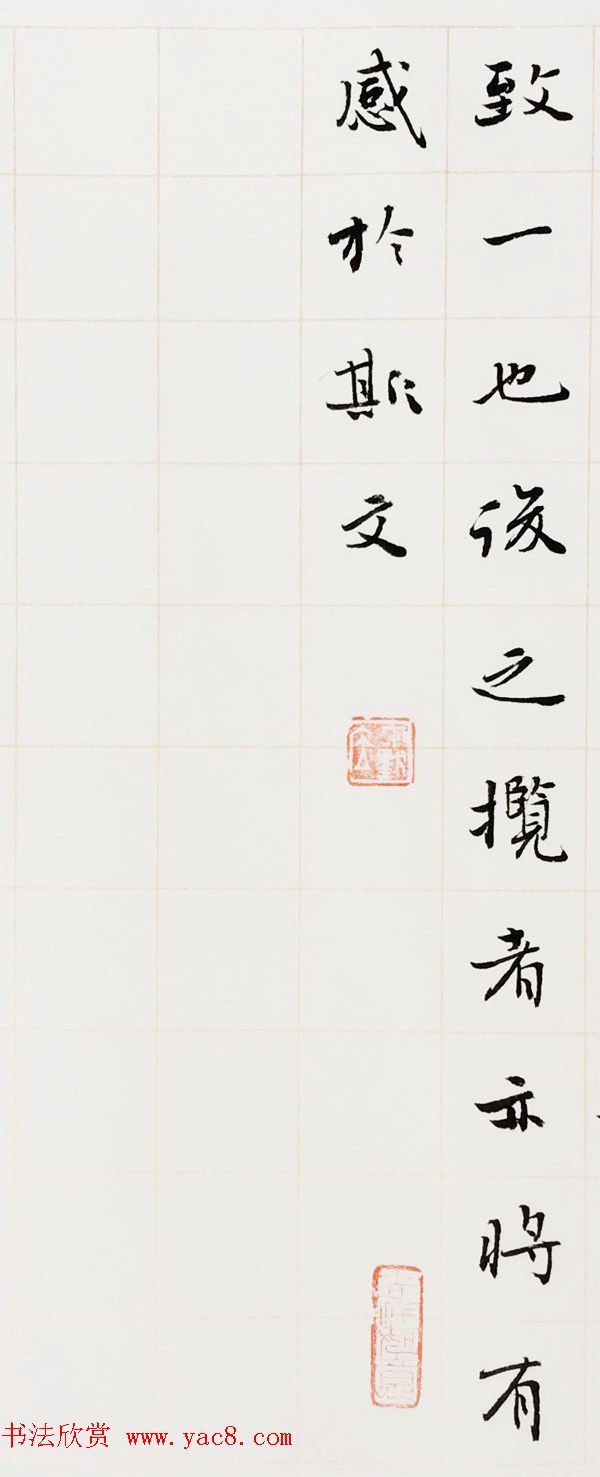 致一也後之攬者亦將有
感於斯文
书法欣赏 www.yac8.com